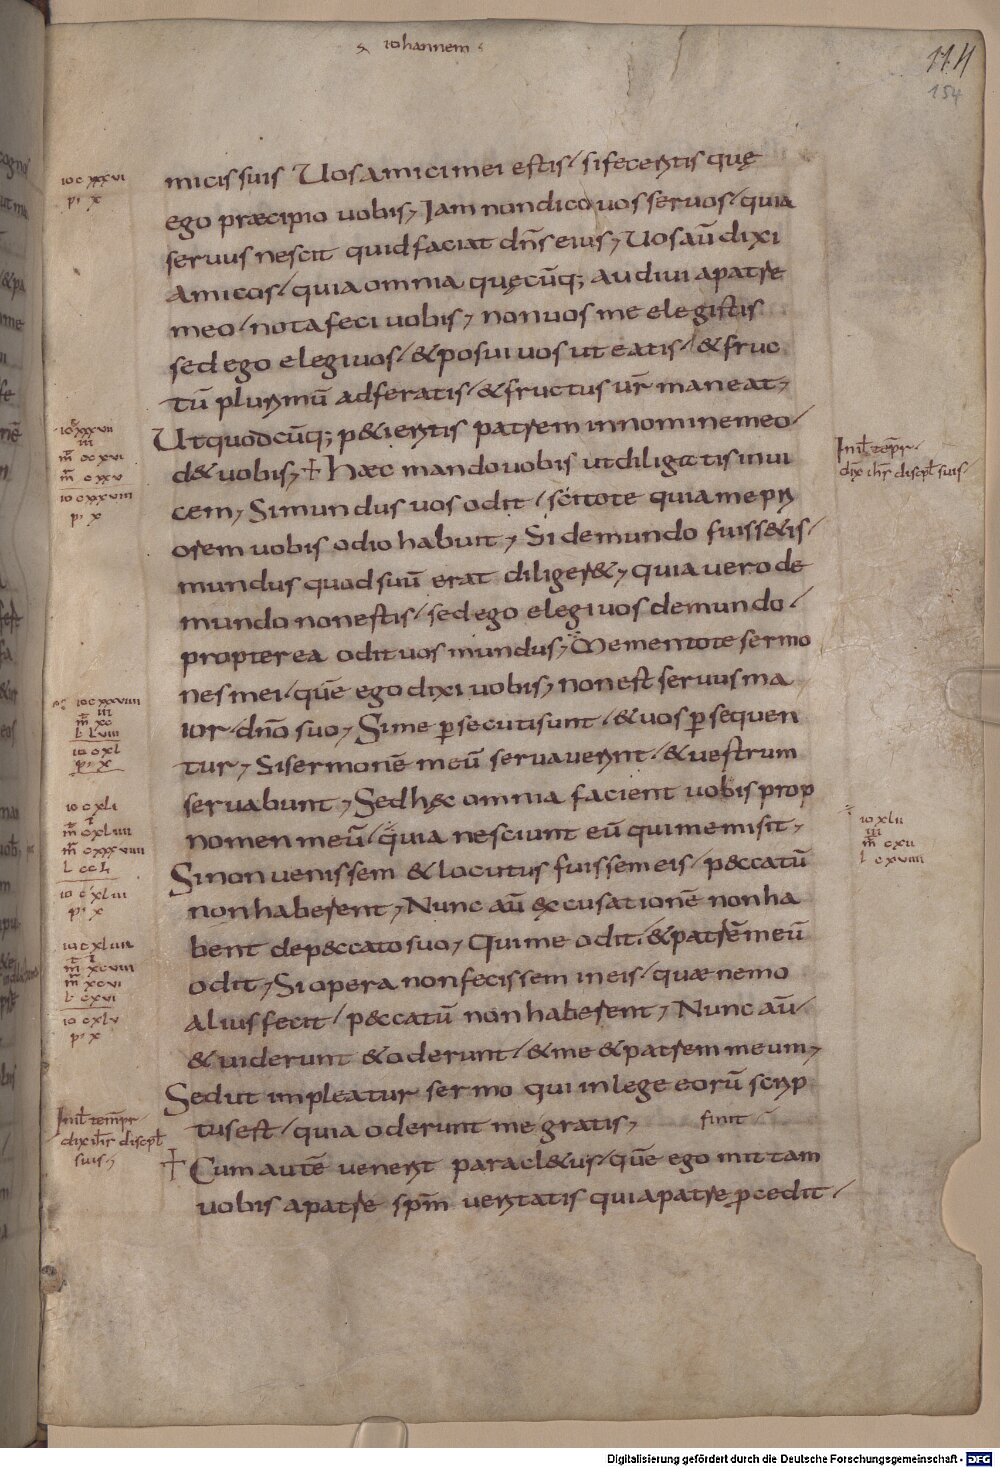 iohannem
114
154
io c xxxvi
p' x
micis suis Uos amici mei estis / si feceritis quę
ego præcipio uobis, Iam non dico uos seruos / quia
seruus nescit quid faciat dñs eius, Uos aū dixi
amicos / quia omnia quęcūq; audiui a patre
meo / nota feci uobis, non uos me elegistis
sed ego elegi uos / & posui uos ut eatis / & fruc
tū plurimū adferatis / & fructus ur̄ maneat,
Ut quodcūq; p&ieritis patrem in nomine meo /
d& uobis, + Hæc mando uobis ut diligatis inui
cem, Si mundus uos odit / scitote quia me pri
orem uobis odio habuit, Si de mundo fuiss&is /
mundus quod suū erat diliger&, quia uero de
mundo non estis / sed ego elegi uos de mundo /
propterea odit uos mundus, Mementote sermo
nes mei / quē ego dixi uobis, non est seruus ma
ior dn̄o suo, Si me p̱secuti sunt / & uos p̱sequen
tur, Si sermonē meū seruauerint / & uestrum
seruabunt, Sed hęc omnia facient uobis prop
nomen meū / quia nesciunt eū qui me misit,
Si non uenissem & locutus fuissem eis / peccatū
non haberent, Nunc aū excusationē non ha
bent de peccato suo, Qui me odit / & patrē meū
odit, Si opera non fecissem in eis / quæ nemo
alius fecit / peccatū non haberent, Nunc aū /
& uiderunt & oderunt / & me & patrem meum,
Sed ut impleatur sermo qui in lege eorū scrip
tus est / quia oderunt me gratis, finit
+ Cum autē uenerit paracl&us / quē ego mittam
uobis a patre sp̄m ueritatis qui a patre p̱cedit /
io c xxxvii
iii
m̄ cc xvi
m̄ c xxv
io c xxxviii
p' x
io c xxxviiii
iii
m̄ xc
l lviii
io c xl
p' x
io c xli
i
m̄ c xliiii
m̄ c xxxviiii
l cc l
io c xliii
p' x
io c xliiii
i
m̄ xcviii
m̄ xcvi
l cxvi
io c xlv
p' x
In il̄ temp̄r
dix ih̄s discipl̄
suis,
In il̄ temp̄r
dix ih̄s discipl̄ suis
io xlii
iii
m̄ cxii
l cxviiii
Digitalisierung gefördert durch die Deutsche Forschungsgemeinschaft - DFG